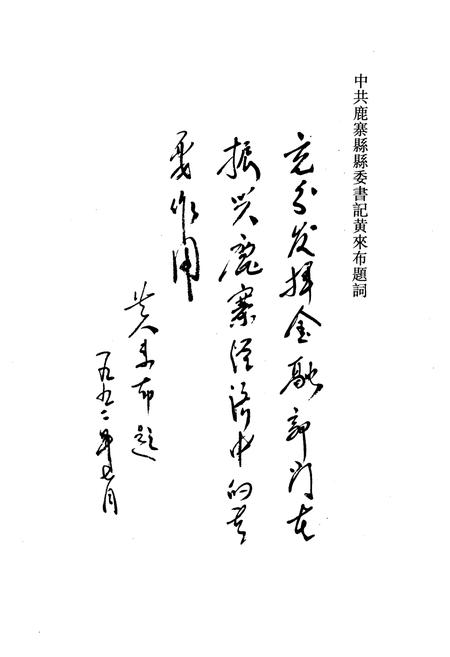 中共鹿寨縣縣委書記黄來布題詞
充分发挥金融部门在
振兴鹿寨经济中的重
要作用
黄来布题
一九九二年七月